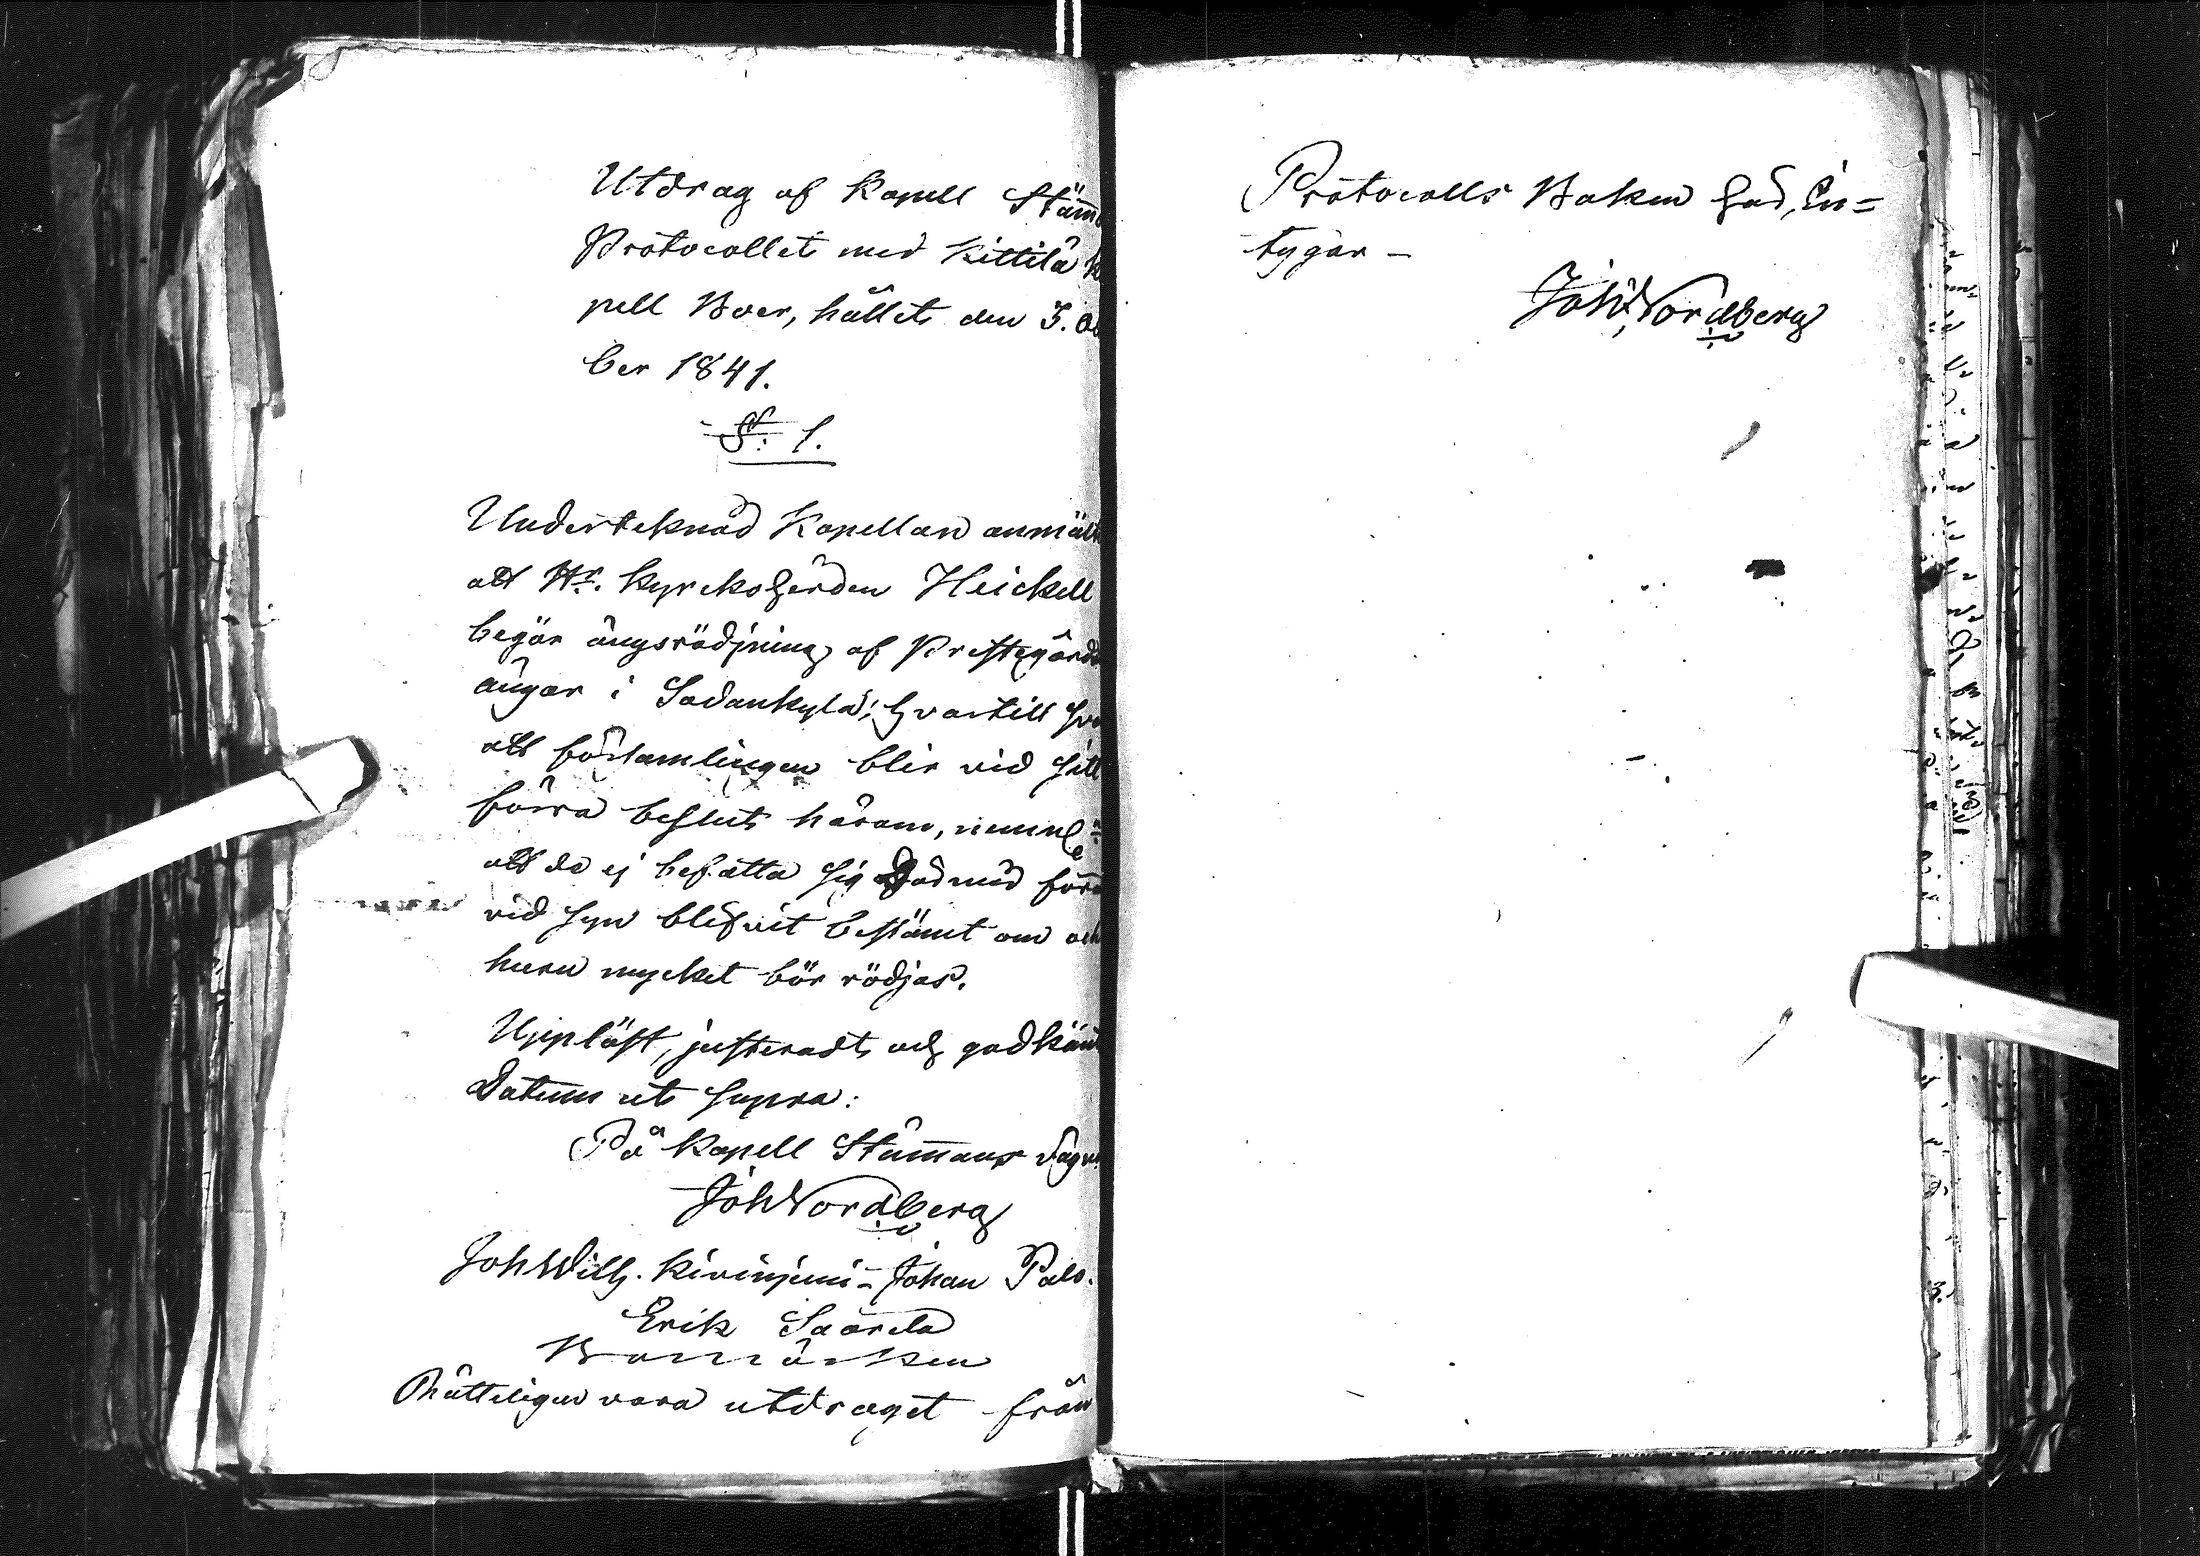 Utdrag af Kapell Stäm
Protocollet med Kittilä K
pell Boer, hållet den 3. O
ber 1841.
§: 1.
Underteknad Kapellan anmält
att Hr. Kyrkoherden Heickell
begär ängsrödjning af Prestegårds
ängar i Sodankylä; hvartill sva
att församlingen blir vid sitt
förra beslut härom, neml:n
att de ej befatta sig dermed förr
vid syn blifvit bestämt om och
huru mycket bör rödjas.
Uppläst, justeradt och godkändt
Datum ut supra:
På Kapell Stämmans vägn
Joh Nordberg
Joh Wilh. Kiviniemi - Johan Palo.
Erik Saarela
Bomärken
Rätteligen vara utdraget från
Protocolls Boken härst. In=
tygar -
Joh: Nordberg